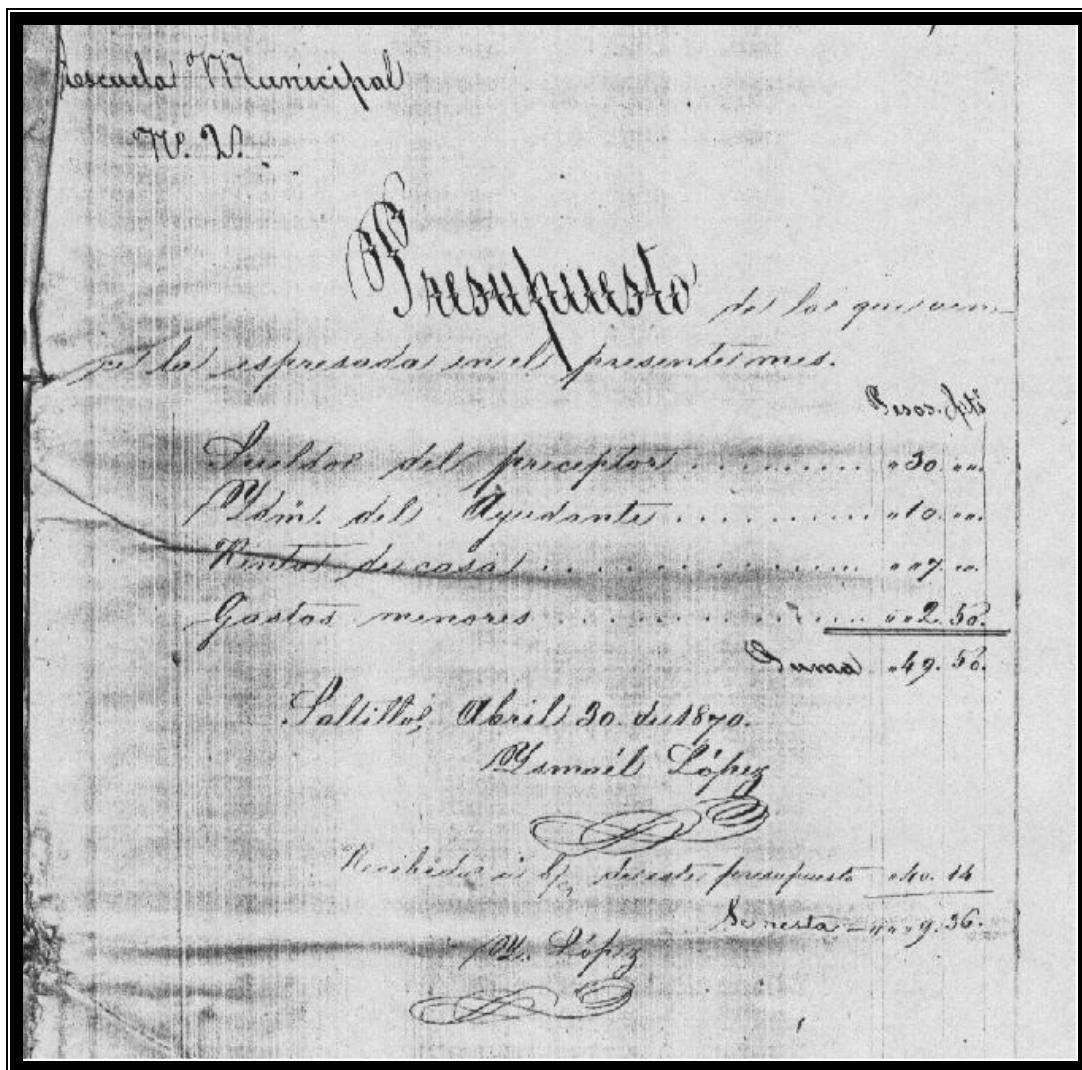 Escuela Municipal
N.º 2.
Presupuesto de lo que ven-
ce la espresada en el presente mes.
Pesos. Cts
Sueldo del preceptor . . . . . . . . . . „ 30. „„
Ydm. del Ayudante . . . . . . . . . . „ 10. „„
Renta de casa . . . . . . . . . . . . „ „ 7. „„
Gastos menores . . . . . . . . . . . „ „ 2. 50.
Suma „ 49. 50.
Saltillo, Abril 30. de 1870.
Ysmaél López
Recibido á c/ de este presupuesto „ 40. 14
Se resta = „ „ „ 9. 36.
Y. López